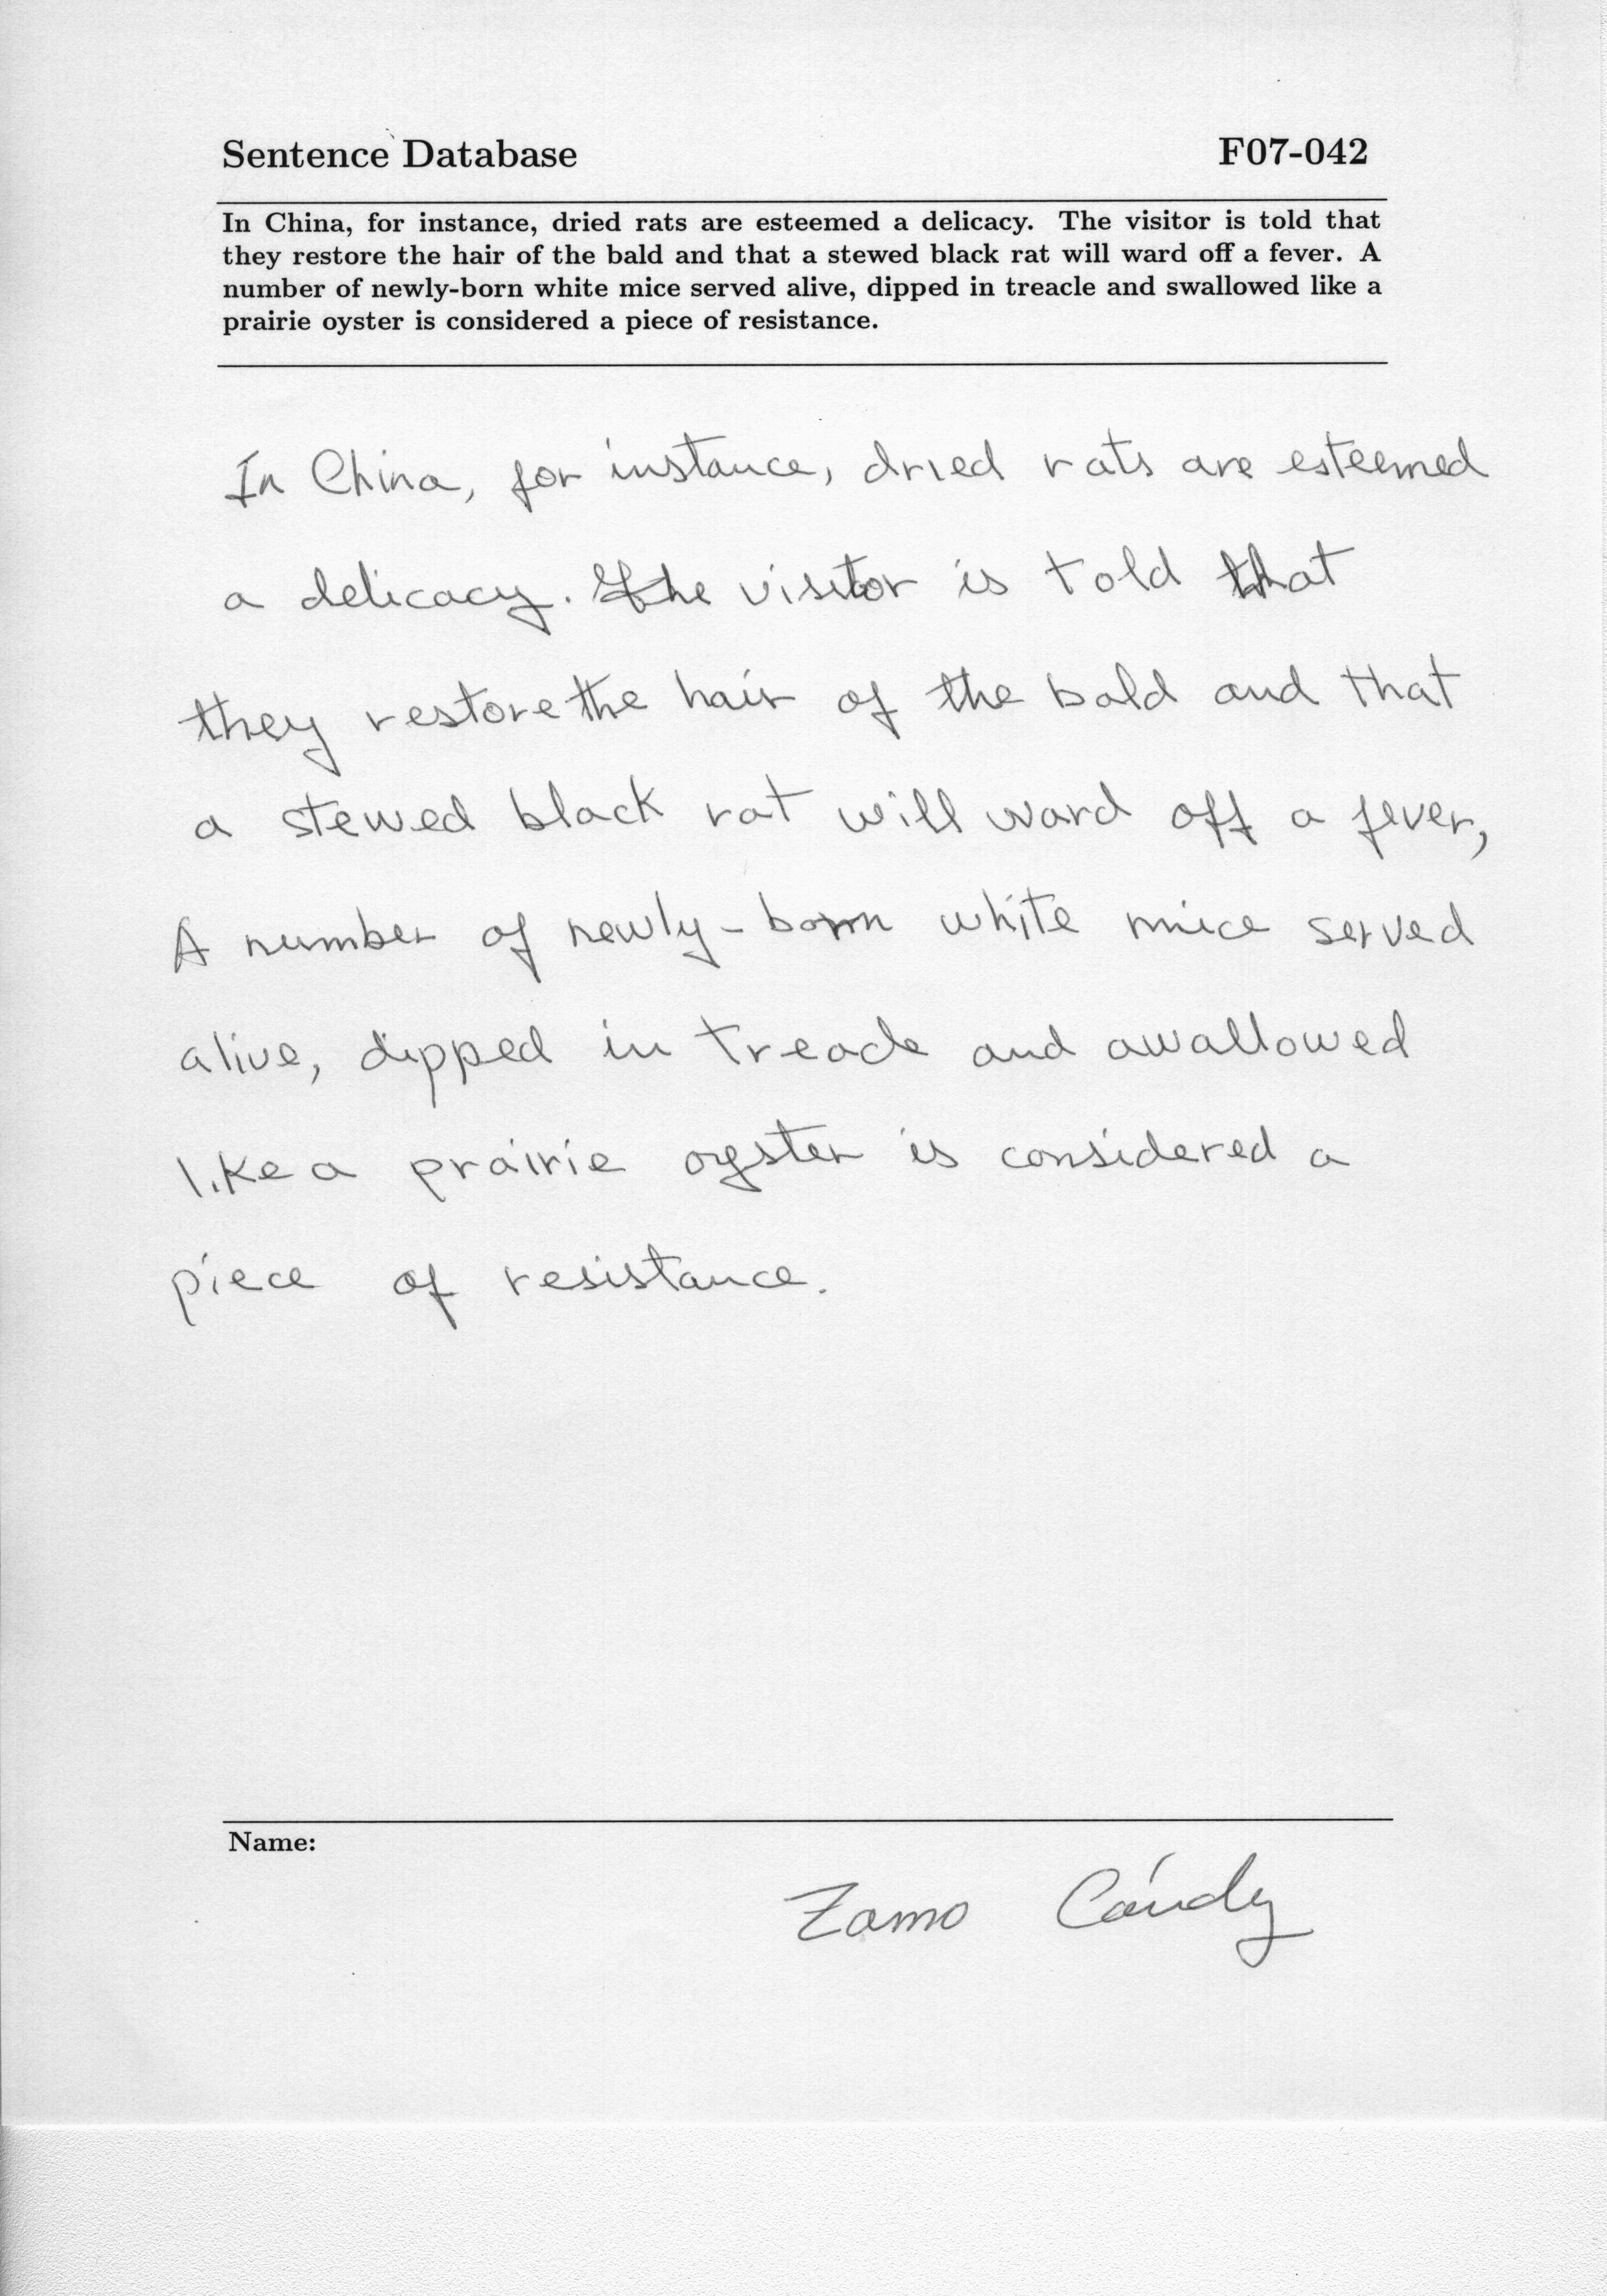 Sentence Database F07-042
In China, for instance, dried rats are esteemed a delicacy. The visitor is told that
they restore the hair of the bald and that a stewed black rat will ward off a fever. A
number of newly-born white mice served alive, dipped in treacle and swallowed like a
prairie oyster is considered a piece of resistance.
In China, for instance, dried rats are esteemed
a delicacy. The visitor is told that
they restore the hair of the bald and that
a stewed black rat will ward off a fever,
A number of newly-born white mice served
alive, dipped in treacle and awallowed
like a prairie oyster is considered a
piece of resistance.
Name:
Zamo Cándy